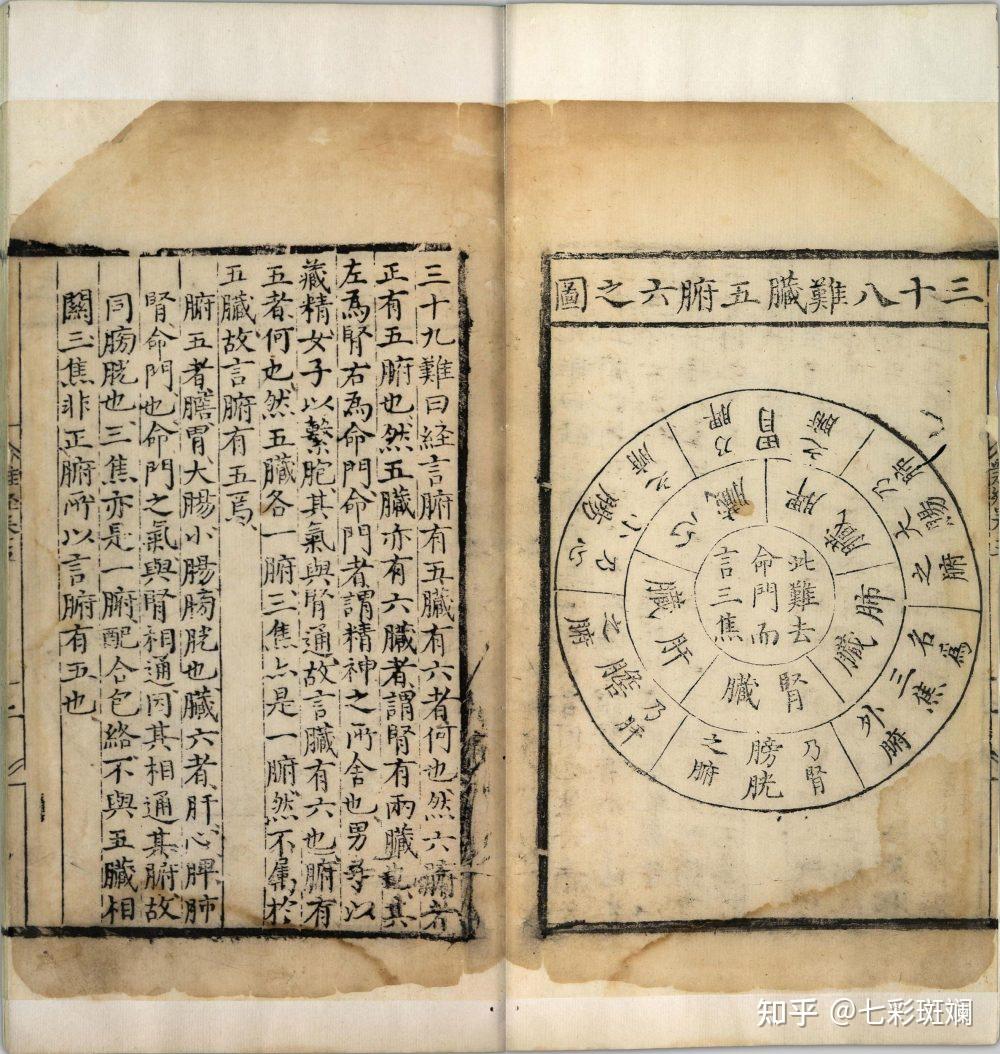 三十八難臟五腑六之圖
此難去
命門而
言三焦
心臟
脾臟
肺臟
腎臟
肝臟
乃脾
胃
之腑
乃肺
大腸
之腑
名為
三焦
外腑
乃腎
膀胱
之腑
乃肝
膽
之腑
乃心
小腸
之腑
三十九難曰経言腑有五臟有六者何也然六腑者
正有五腑也然五臟亦有六臟者謂腎有兩臟也其
左為腎右為命門命門者謂精神之所舍也男子以
藏精女子以繫胞其氣與腎通故言臟有六也腑有
五者何也然五臟各一腑三焦亦是一腑然不屬於
五臟故言腑有五焉
腑五者膽胃大腸小腸膀胱也臟六者肝心脾肺
腎命門也命門之氣與腎相通因其相通其腑故
同膀胱也三焦亦是一腑配合包絡不與五臟相
關三焦非正腑所以言腑有五也
知乎 @七彩斑斓